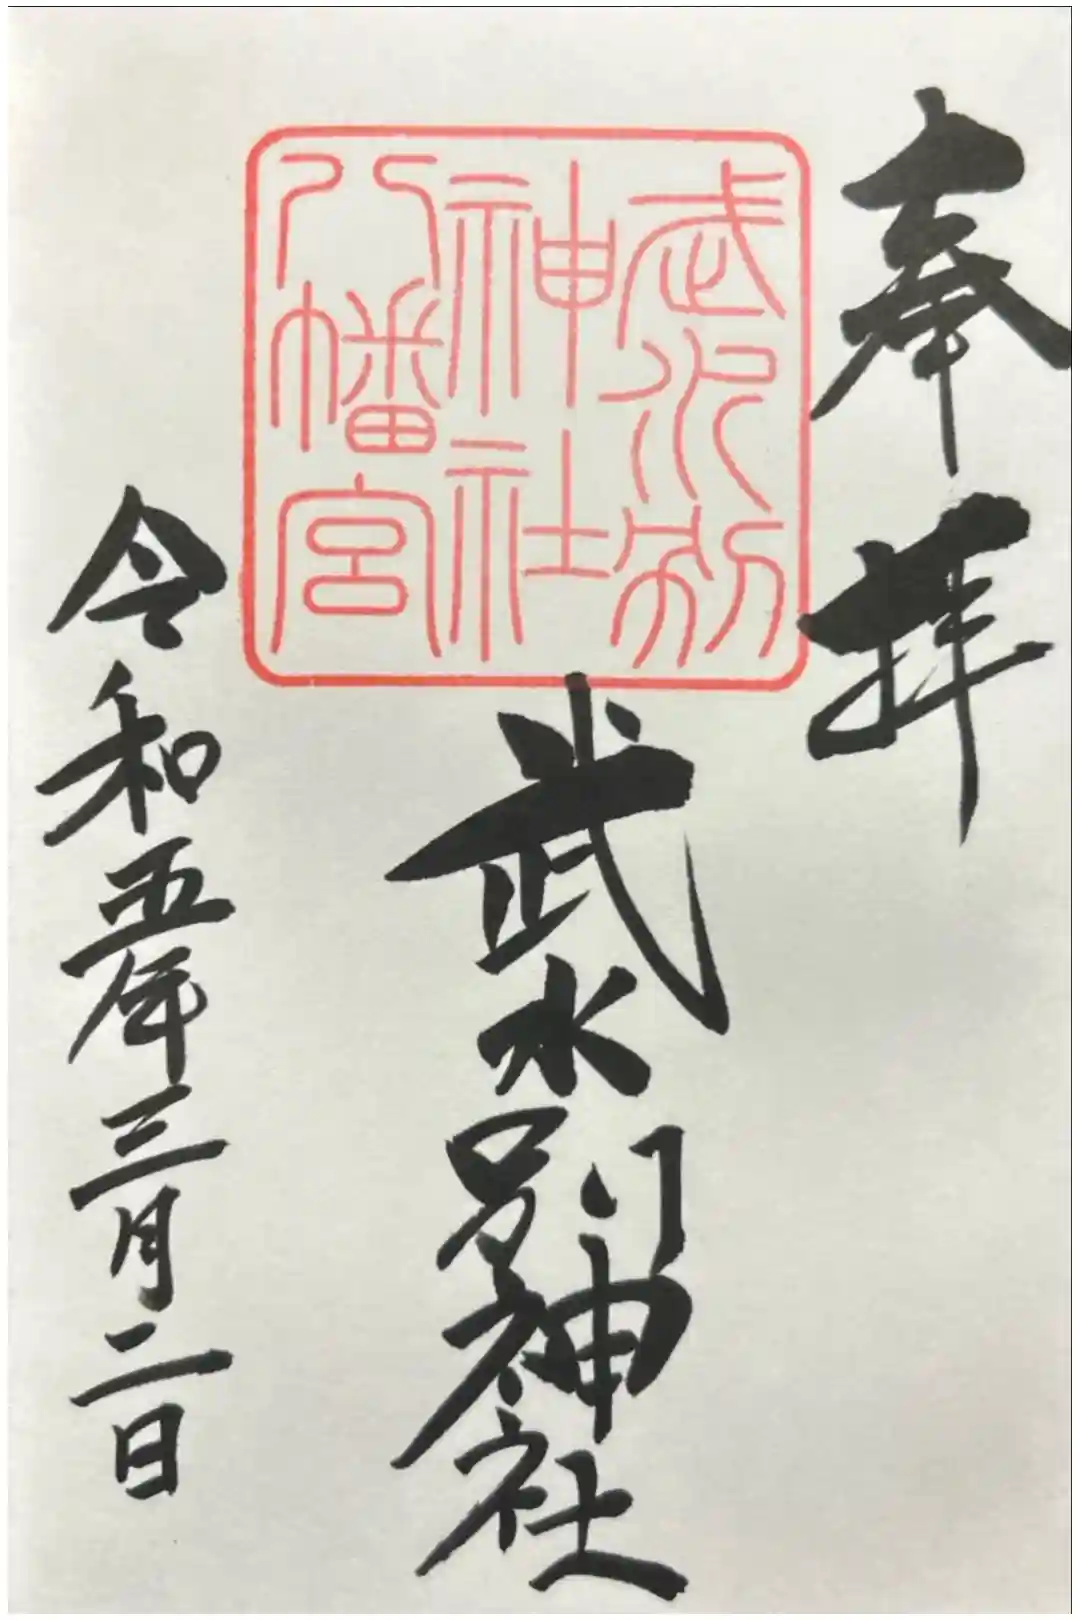 奉拝
武水別
神社
八幡宮
武水別神社
令和五年三月二日